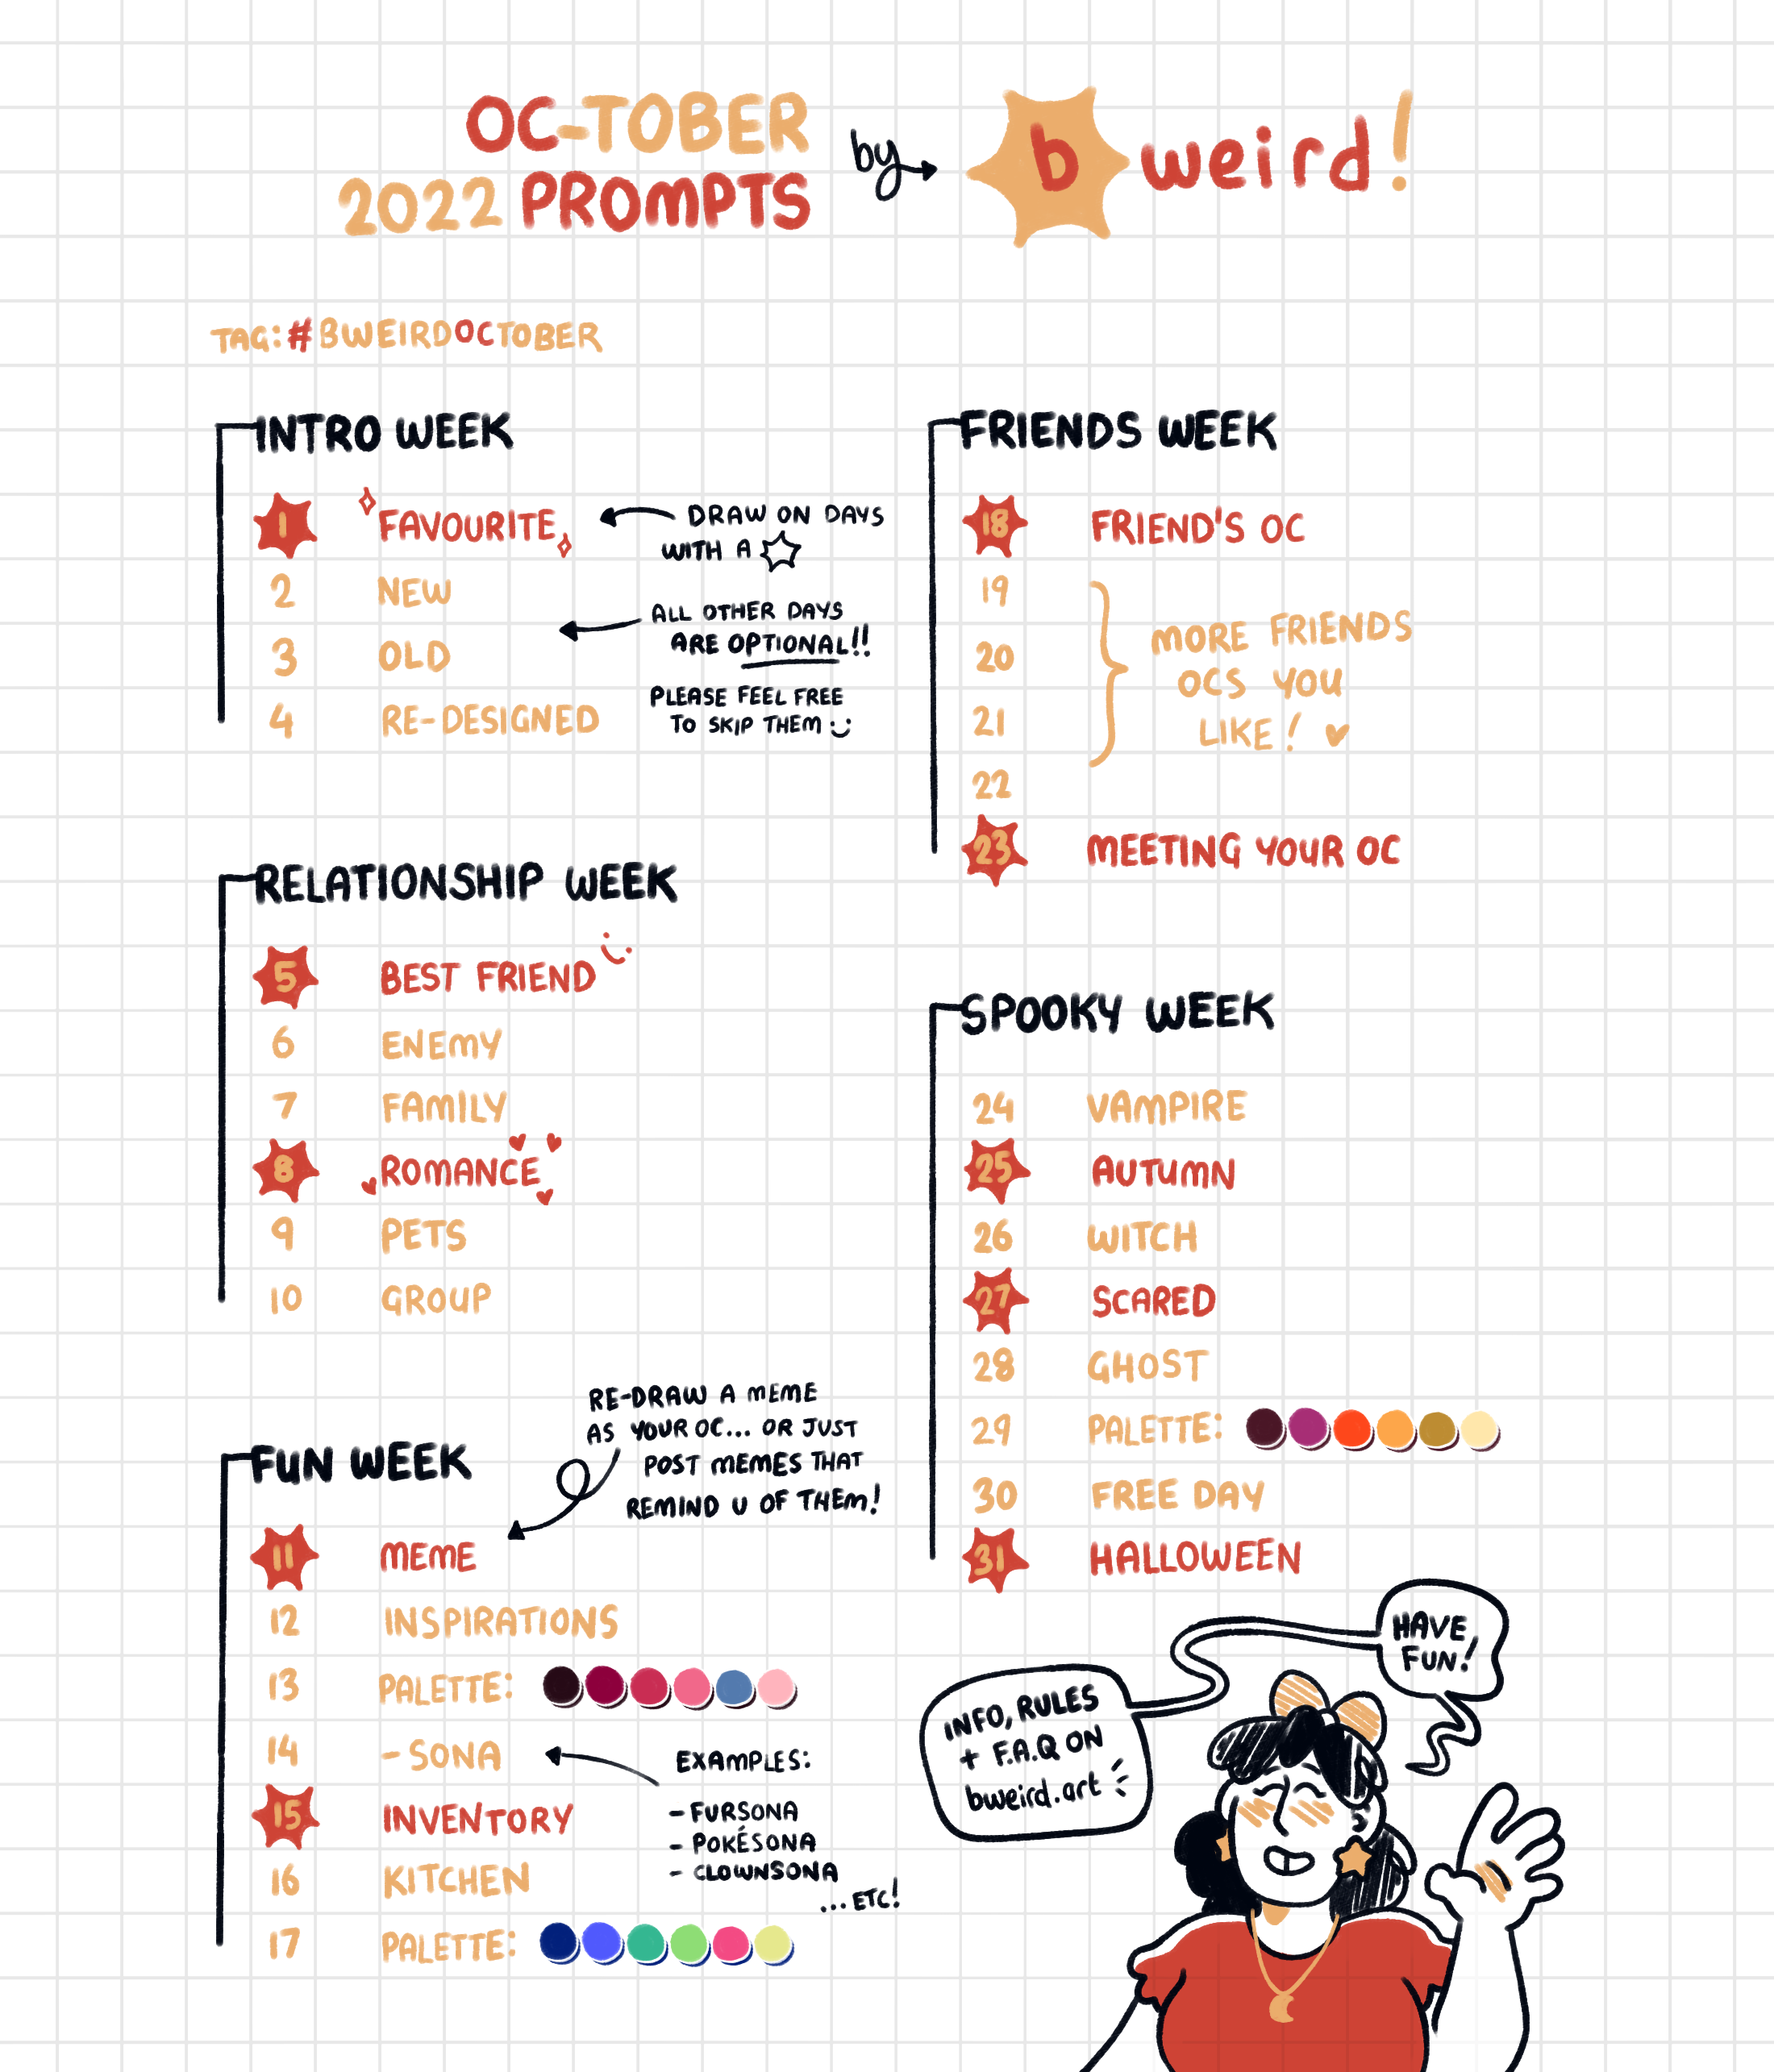 OC-TOBER
2022 PROMPTS
by
b weird!
TAG: #BWEIRDOCTOBER
INTRO WEEK
1 FAVOURITE
DRAW ON DAYS
WITH A
2 NEW
ALL OTHER DAYS
ARE OPTIONAL!!
3 OLD
PLEASE FEEL FREE
TO SKIP THEM :)
4 RE-DESIGNED
RELATIONSHIP WEEK
5 BEST FRIEND :)
6 ENEMY
7 FAMILY
8 ROMANCE
9 PETS
10 GROUP
FUN WEEK
RE-DRAW A MEME
AS YOUR OC... OR JUST
POST MEMES THAT
REMIND U OF THEM!
11 MEME
12 INSPIRATIONS
13 PALETTE:
14 -SONA
EXAMPLES:
- FURSONA
- POKÉSONA
- CLOWNSONA
...ETC!
15 INVENTORY
16 KITCHEN
17 PALETTE:
FRIENDS WEEK
18 FRIEND'S OC
19
20
21
22
MORE FRIENDS
OCS YOU
LIKE!
23 MEETING YOUR OC
SPOOKY WEEK
24 VAMPIRE
25 AUTUMN
26 WITCH
27 SCARED
28 GHOST
29 PALETTE:
30 FREE DAY
31 HALLOWEEN
HAVE
FUN!
INFO, RULES
+ F.A.Q ON
bweird.art